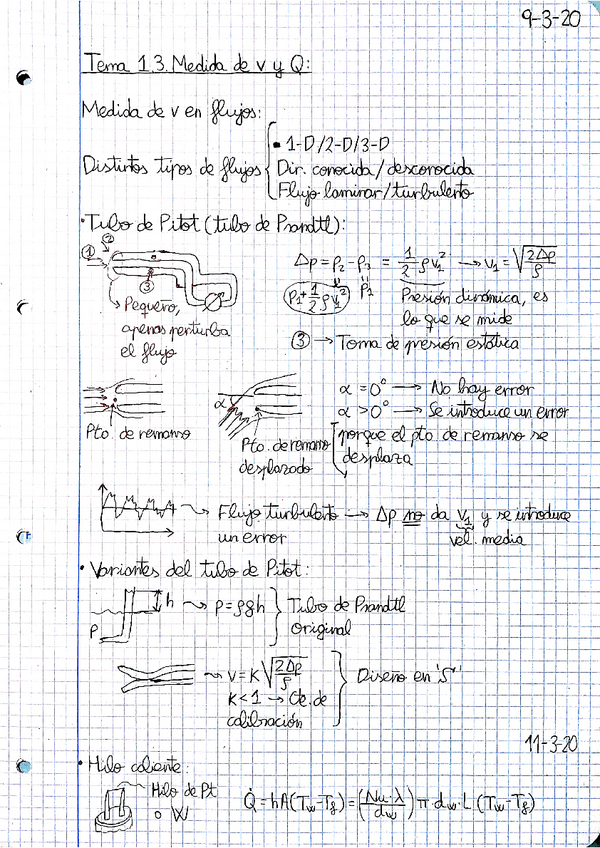 9-3-20
Tema 1.3. Medida de v y Q:
Medida de v en flujos:
Distintos tipos de flujos { • 1-D/2-D/3-D
Dir. conocida/desconocida
Flujo laminar/turbulento
• Tubo de Pitot (tubo de Prandtl):
① ② ③
Δp = p₂ - p₃ = 1/2 ρv₁² → v₁ = √(2Δp/ρ)
p₁ + 1/2 ρv₁²  p₁
Presión dinámica, es
lo que se mide
Pequeño,
apenas perturba
el flujo
③ → Toma de presión estática
α = 0° → No hay error
α > 0° → Se introduce un error
porque el pto de remanso se
desplaza
Pto. de remanso
α
Pto. de remanso
desplazado
Flujo turbulento → Δp no da v₁ y se introduce
un error
vel. media
• Variantes del tubo de Pitot:
h → p = ρgh } Tubo de Prandtl
original
P
→ v = K√(2Δp/ρ) } Diseño en 'S'
K < 1 → Cte. de
calibración
11-3-20
• Hilo caliente:
Hilo de Pt
o W
Q̇ = hA(T_w - T_f) = (Nu·λ/d_w) π·d_w·L (T_w - T_f)